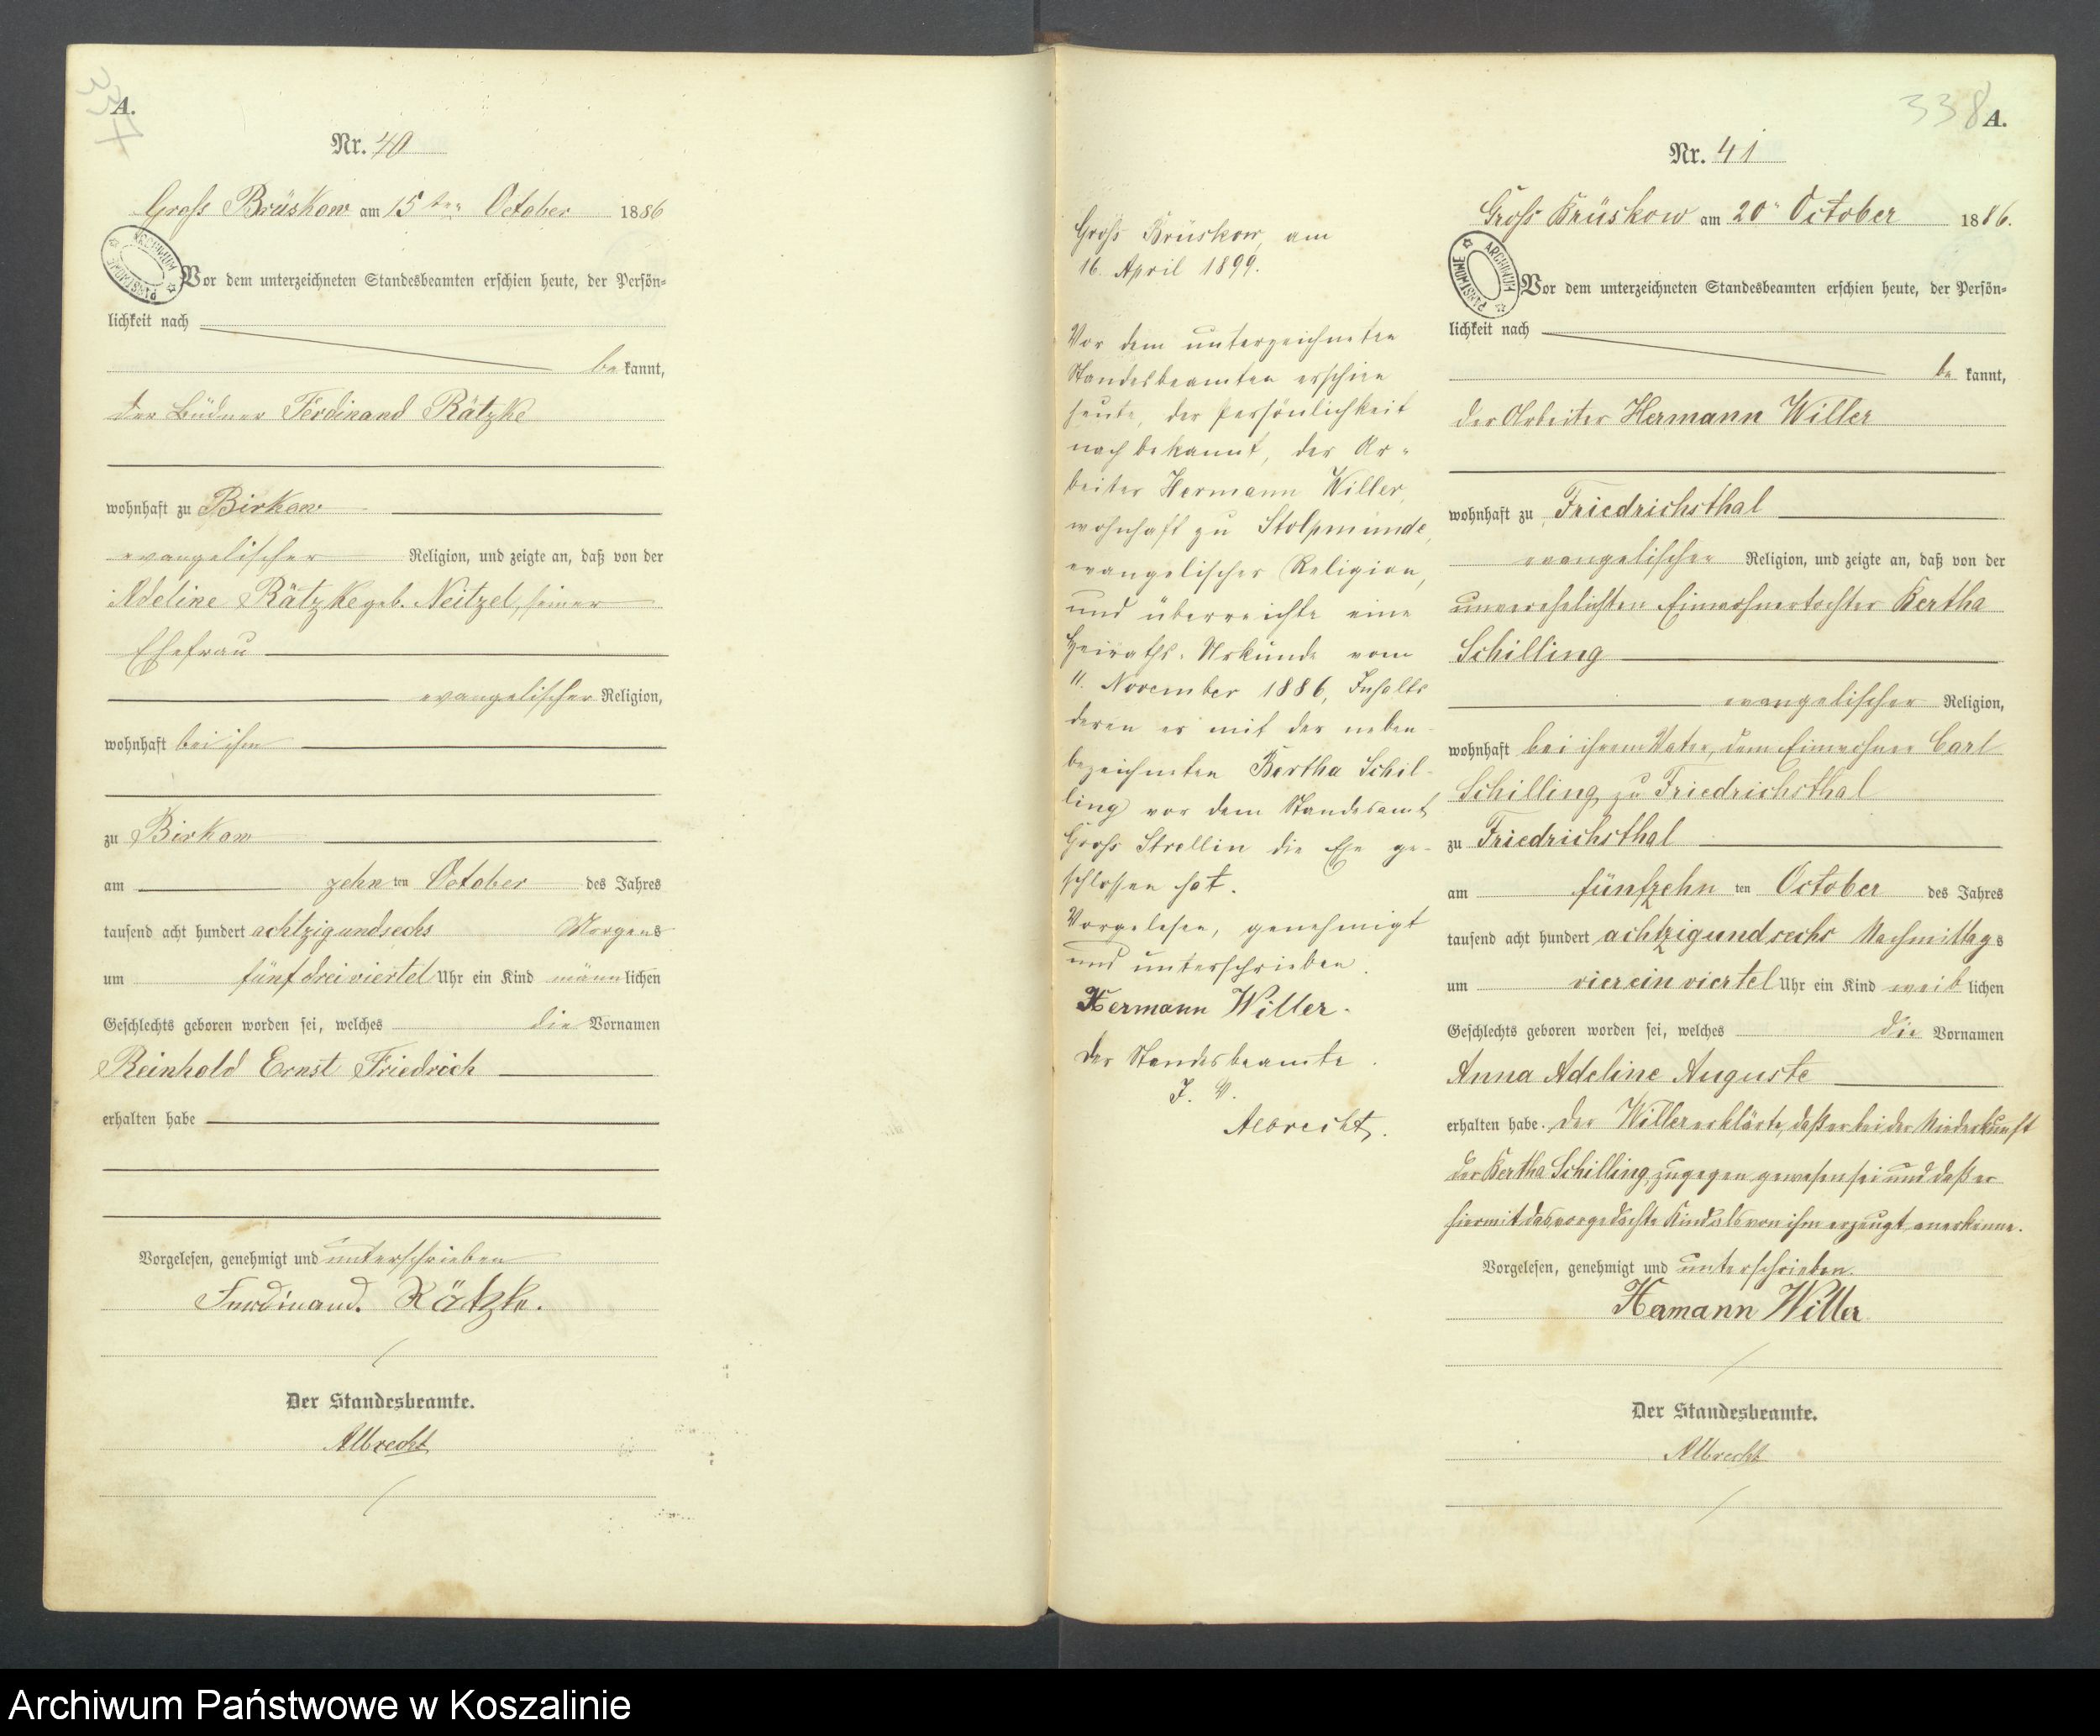 A.
Nr. 40
Gross Brüskow am 15ten October 1886
ARCHIWUM PAŃSTWOWE
Vor dem unterzeichneten Standesbeamten erschien heute, der Persön-
lichkeit nach
be kannt,
der Büdner Ferdinand Rätzke
wohnhaft zu Birkow
evangelischer Religion, und zeigte an, daß von der
Adeline Rätzke geb. Neitzel, seiner
Ehefrau
evangelischer Religion,
wohnhaft bei ihm
zu Birkow
am zehn ten October des Jahres
tausend acht hundert achtzigundsechs Morgens
um fünf dreiviertel Uhr ein Kind männ lichen
Geschlechts geboren worden sei, welches die Vornamen
Reinhold Ernst Friedrich
erhalten habe
Vorgelesen, genehmigt und unterschrieben
Ferdinand. Rätzke.
Der Standesbeamte.
Albrecht
Gross Brüskow, am
16. April 1899.
Vor dem unterzeichneten
Standesbeamten erschien
heute, der Persönlichkeit
nach bekannt, der Ar-
beiter Hermann Willer,
wohnhaft zu Stolpmünde,
evangelischer Religion,
und überreichte eine
Heiraths-Urkunde vom
11. November 1886, Inhalts
deren er mit der neben-
bezeichneten Bertha Schil-
ling vor dem Standesamt
Gross Strellin die Ehe ge-
schlossen hat.
Vorgelesen, genehmigt
und unterschrieben.
Hermann Willer.
Der Standesbeamte.
J. V.
Albrecht.
338 A.
Nr. 41
Gross Brüskow am 20n October 1886.
ARCHIWUM PAŃSTWOWE
Vor dem unterzeichneten Standesbeamten erschien heute, der Persön-
lichkeit nach
be kannt,
der Arbeiter Hermann Willer
wohnhaft zu Friedrichsthal
evangelischer Religion, und zeigte an, daß von der
unverehelichten Einwohnertochter Bertha
Schilling
evangelischer Religion,
wohnhaft bei ihrem Vater, dem Einwohner Carl
Schilling zu Friedrichsthal
zu Friedrichsthal
am fünfzehn ten October des Jahres
tausend acht hundert achtzigundsechs Nachmittags
um vier ein viertel Uhr ein Kind weib lichen
Geschlechts geboren worden sei, welches die Vornamen
Anna Adeline Auguste
erhalten habe. Der Willer erklärte, daß er bei der Niederkunft
der Bertha Schilling zugegen gewesen sei und daß er
hiermit das vorgedachte Kind als von ihm erzeugt anerkenne.
Vorgelesen, genehmigt und unterschrieben.
Hermann Willer
Der Standesbeamte.
Albrecht
Archiwum Państwowe w Koszalinie